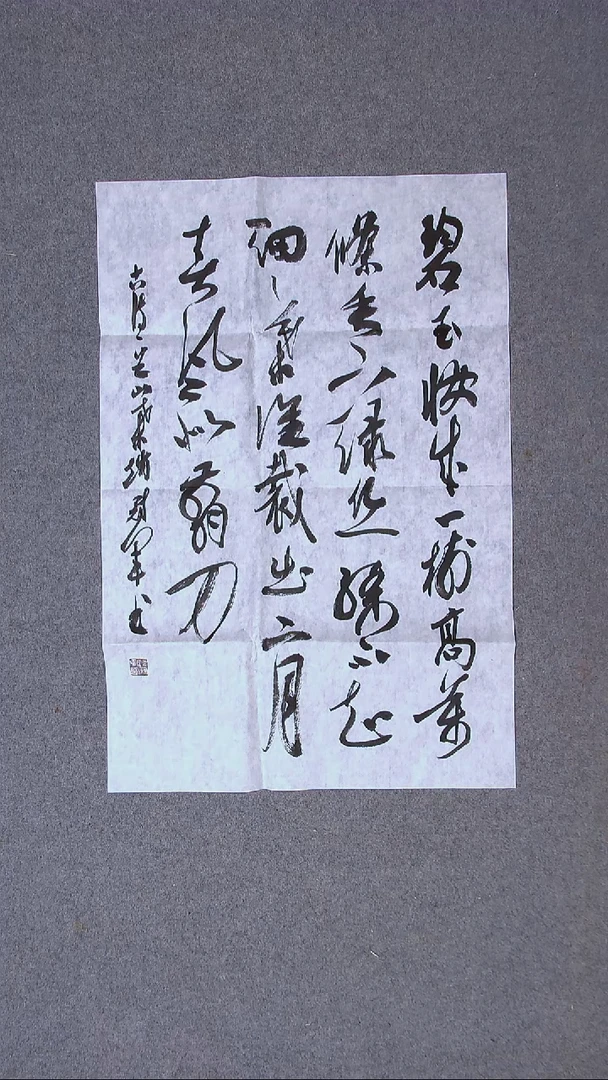 碧玉妝成一樹高萬
條垂下綠絲絛不知
細〻葉誰裁出二月
春風似剪刀
古詩一首 軍书